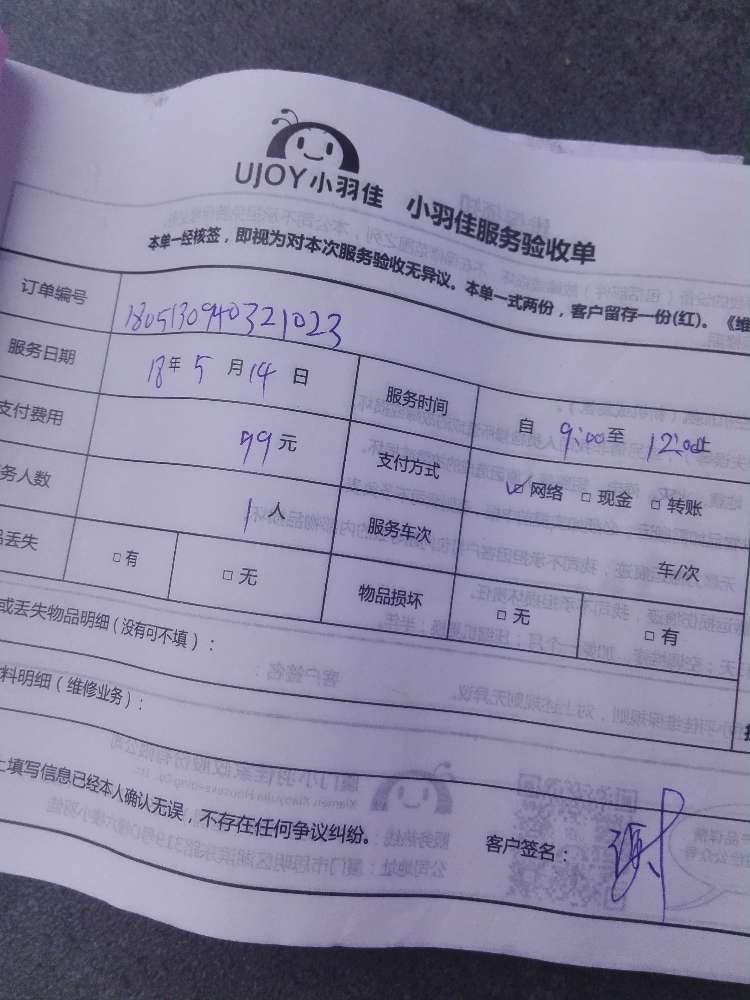 UJOY小羽佳 小羽佳服务验收单
本单一经核签，即视为对本次服务验收无异议。本单一式两份，客户留存一份(红)。《维
订单编号 180513094032102​3
服务日期 18年 5 月 14 日 服务时间 自 9:00至 12:00止
支付费用 99元 支付方式 ☑网络 □现金 □转账
务人数 1人 服务车次 车/次
丢失 □有 □无 物品损坏 □无 □有
或丢失物品明细（没有可不填）：
料明细（维修业务）：
填写信息已经本人确认无误，不存在任何争议纠纷。 客户签名： 谢